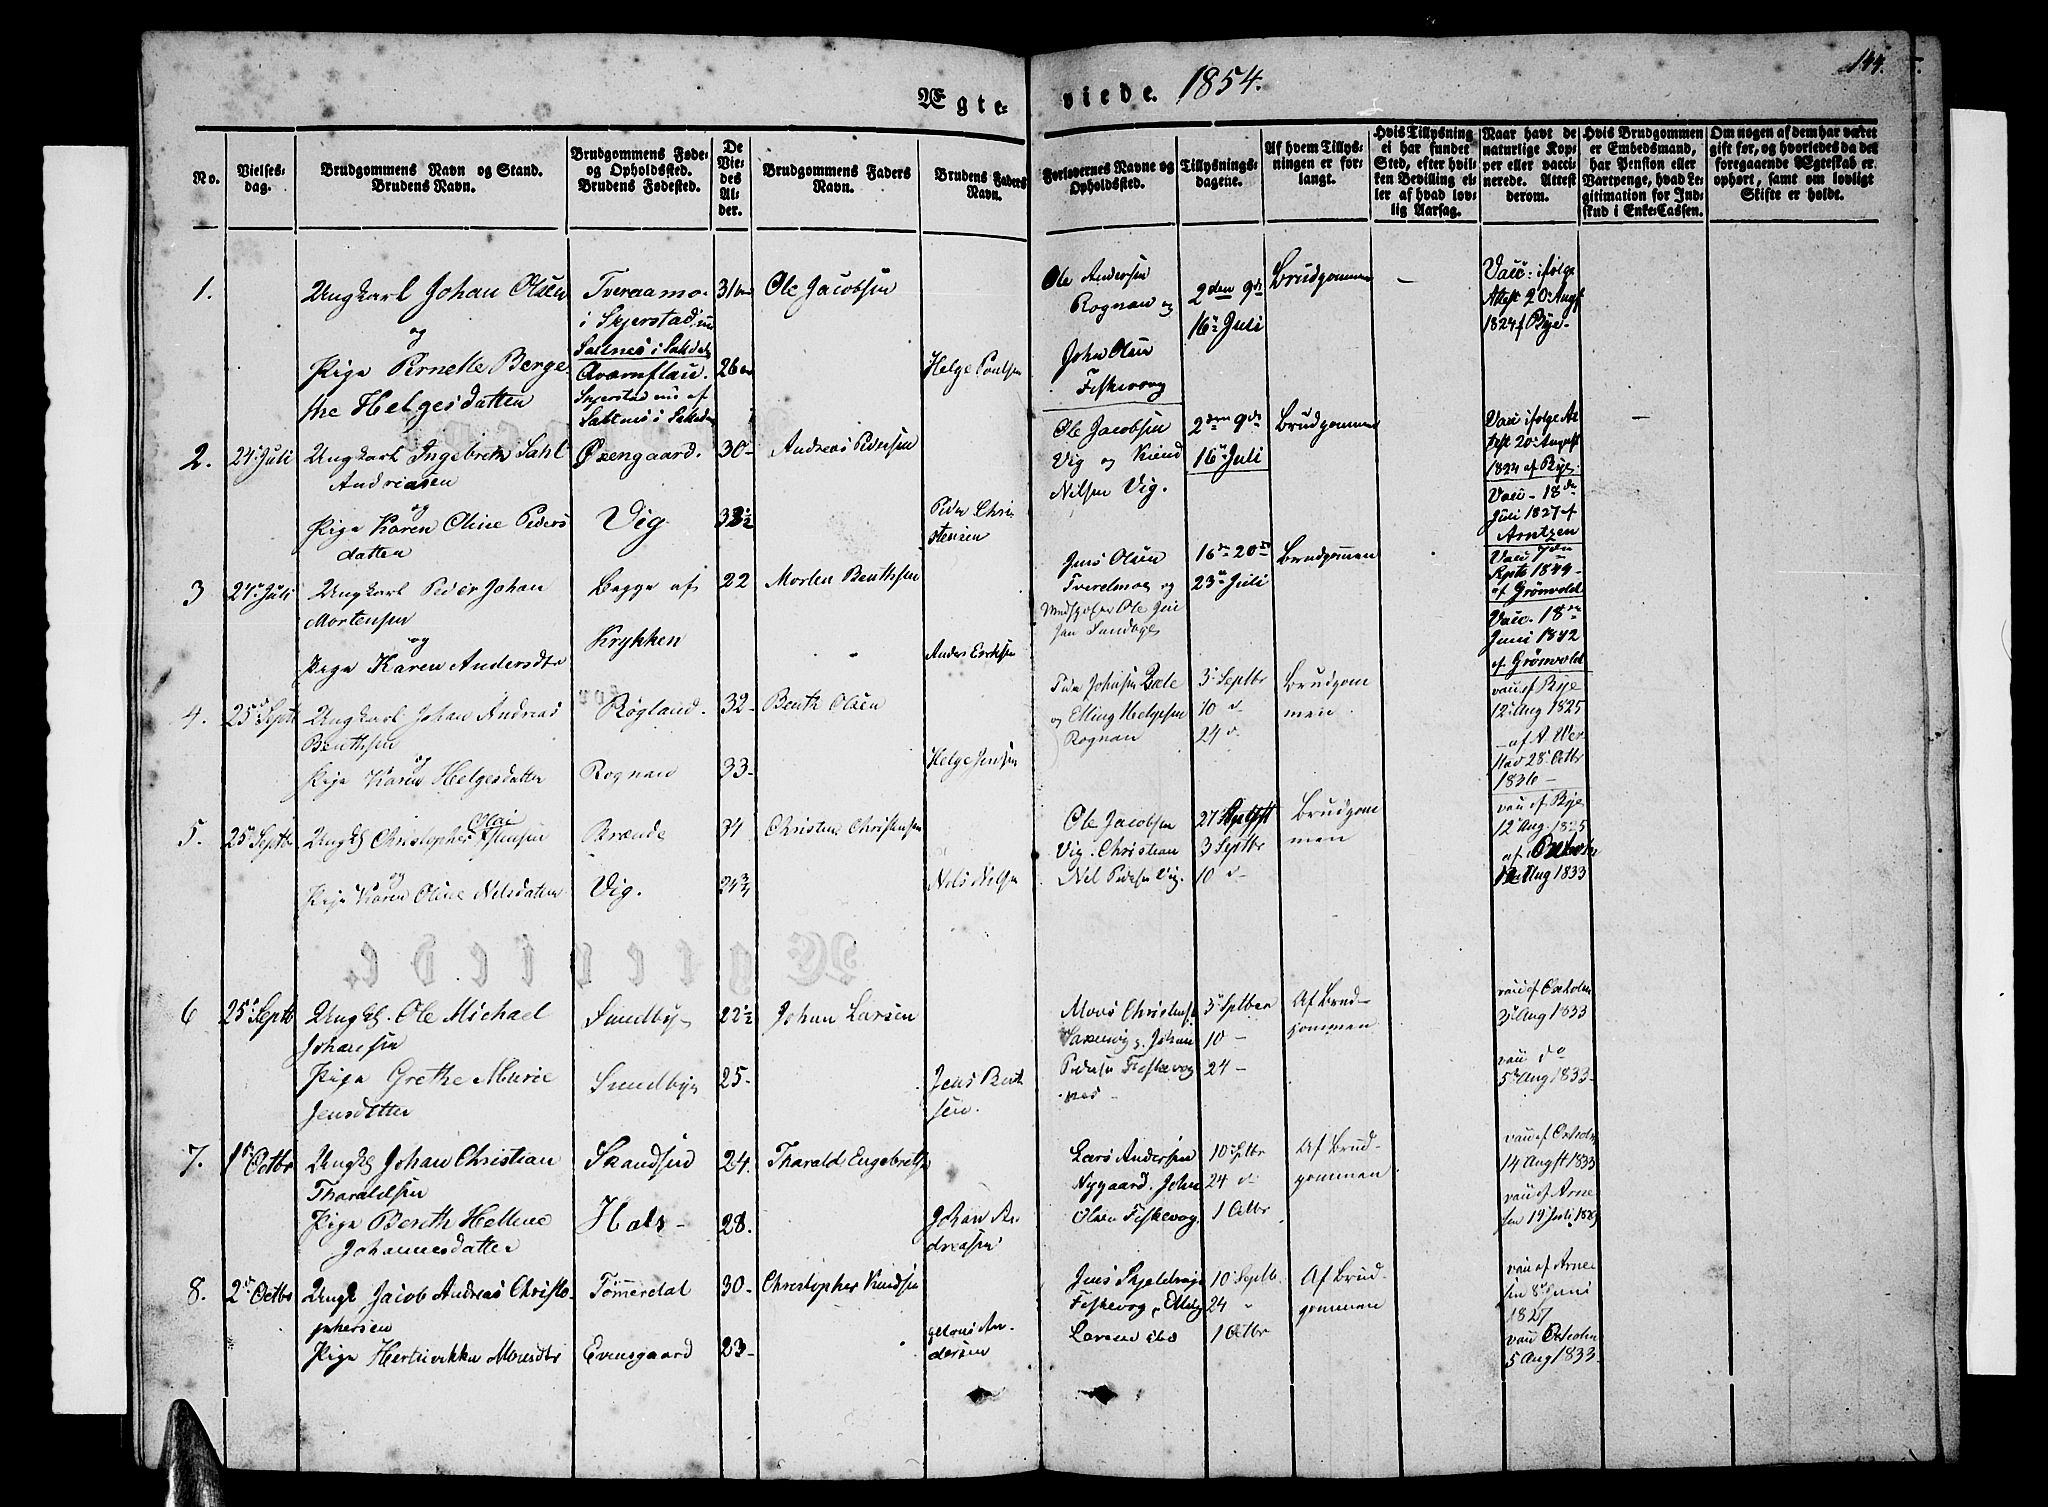 Ægteviede. 1854.
144.
No.
Vielsesdag.
Brudgommens Navn og Stand.
Brudens Navn.
Brudgommens Føde-
og Opholdssted.
Brudens Fødested.
De
Vie-
des
Al-
der.
Brudgommens Faders
Navn.
Brudens Faders
Navn.
Forlovernes Navne og
Opholdssted.
Tillysnings-
dagene.
Af hvem Tillys-
ningen er for-
langt.
Hvis Tillysning
ei har fundet
Sted, efter hvil-
ken Bevilling el-
ler af hvad lov-
lig Aarsag.
Naar havt de
naturlige Kop-
per eller vacci-
nerede. Attest
derom.
Hvis Brudgommen
er Embedsmand,
har Pension eller
Vartpenge, hvad Le-
gitimation for Ind-
skud i Enke-Cassen.
Om nogen af dem har været
gift før, og hvorledes da det
foregaaende Ægteskab er
ophørt, samt om lovligt
Skifte er holdt.
1.
Ungkarl Johan Olsen
og
Pige Pernelle Berge
the Helgesdatter
Tveraamo
i Skjerstad
Saltnes i Saltdal
Qvæmflau
Skjerstad nu af
Saltnes i Saltdal
31
26
Ole Jacobsen
Helge Poulsen
Ole Andersen
Rognan og
John Olsen
Fiskevog
2den 9de
16de Juli
Brudgommen
Vacc: ifølge
Attest 20 Aug
1824 f Bye
2.
24 Juli
Ungkarl Ingebret Dahl
Andreasen
og
Pige Karen Oline Peders
datter
Øxengaard.
Vig
30
33½
Andreas Pedersen
Peder Chri-
stensen
Ole Jacobsen
Vig og
Nilsen Vig.
2den 9de
16de Juli
Brudgommen
Vacc ifølge At
test 20 August
1824 af Bye
Vacc. 18de
Juli 1827 af
Arntzen
3
24 Juli
Ungkarl Peder Johan
Mortensen
og
Pige Karen Andersdtr
Begge af
Krykken
22
Morten Benthsen
Anders Eriksen
Jens Olsen
Tverelmog og
16de 20de
23de Juli
Brudgommen
Vacc 7den
Septb 1849
af Grønvold
Vacc. 18de
Juni 1842
af Grønvold
4.
25 Septb
Ungkarl Johan Andreas
Benthsen
og
Pige Karen Helgesdatter
Røgland.
Rognan
32
33
Benth Olsen
Helge Jensen
Peder Johnsen
og Elling Helgesen
Rognan
3 Septbr
10 d
24 d
Brudgom
men
vacc af Bye
12 Aug 1825
af A Wer
28 Octbr
1836
5.
25 Septbr
Ungk Christopher Olai Jensen
og
Pige Karen Oline Nilsdatter
Brænde
Vig.
34
24¾
Christens Christensen
Nils Nilsen
Ole Jacobsen
Vig. Christian
Nil Pedersen Vig.
27 August
3 Septbr
10 d
Brudgom
men
vacc af Bye
12 Aug 1825
af
12 Aug 1833
6
25 Septb
Ungk. Ole Michael
Johansen
Pige Grethe Marie
Jensdatter
Sundby
Sundby
22½
25
Johan Larsen
Jens Bent
sen.
Moos Christens
Saxenvig og Johan
Pedersen Fiskevog
næs
3 Septber
10
24
Af Brud-
gommen
vacc af Oxholm
3 Aug 1833
vacc do
5 Aug 1833
7.
1 Octbr
Ungk Johan Christian
Tharaldsen
Pige Bereth Hellene
Johannesdatter
Sandsen
Hals
24.
28.
Tharald Engebretsen
Johan An
dreassen
Lars Andersen
Nygaard. John
Olsen Fiskevog.
10 Septbr
24 d
1 Octbr
Af Brud
gommen
vacc af Oxholm
14 Augst 1833
vacc af Arne
sen 19 Juli
8.
2 Octbr
Ungk Jacob Andreas Christo-
phersen
Pige Monsdtr
Tømmerdal
Evensgaard
30
23
Christopher Knudsen
Mons An-
dersen
Jens Skjeldvog
Fiskevog
Larsen ibd
10 Septb.
24
1 Octbr
Af Brud
gommen
vacc af Arne
sen 8 Juni
1827
vacc Oxholm
5 Aug 1833